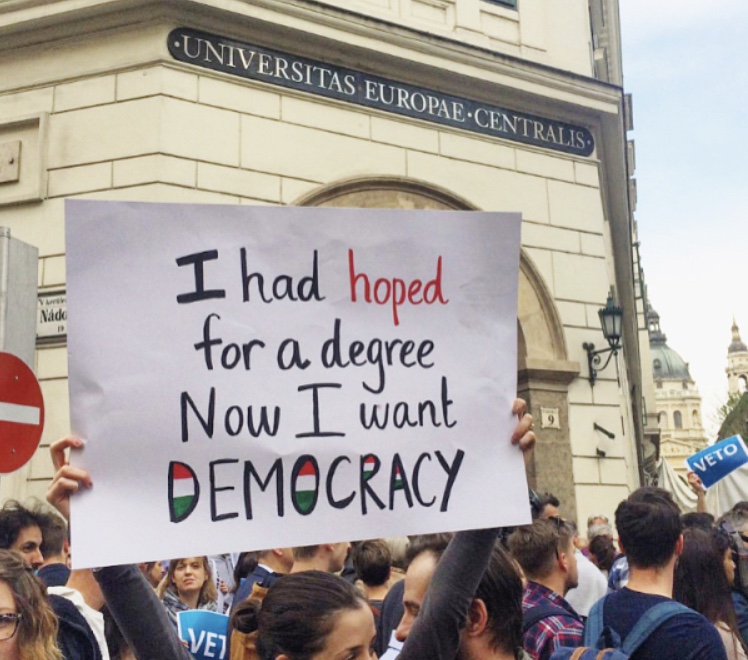 ·UNIVERSITAS EUROPAE·CENTRALIS·
I had hoped
for a degree
Now I want
DEMOCRACY
9
VETO
VET